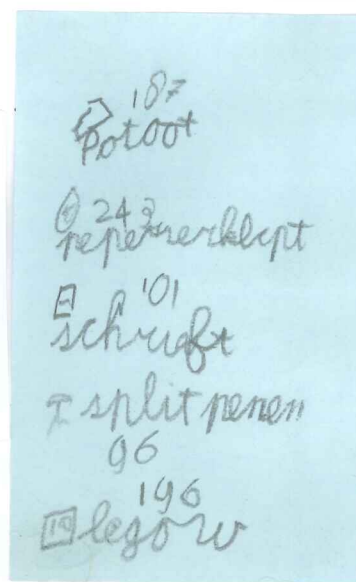 187
Potoot
243
repenerklipt
101
schrift
splitpenen
96
196
legow